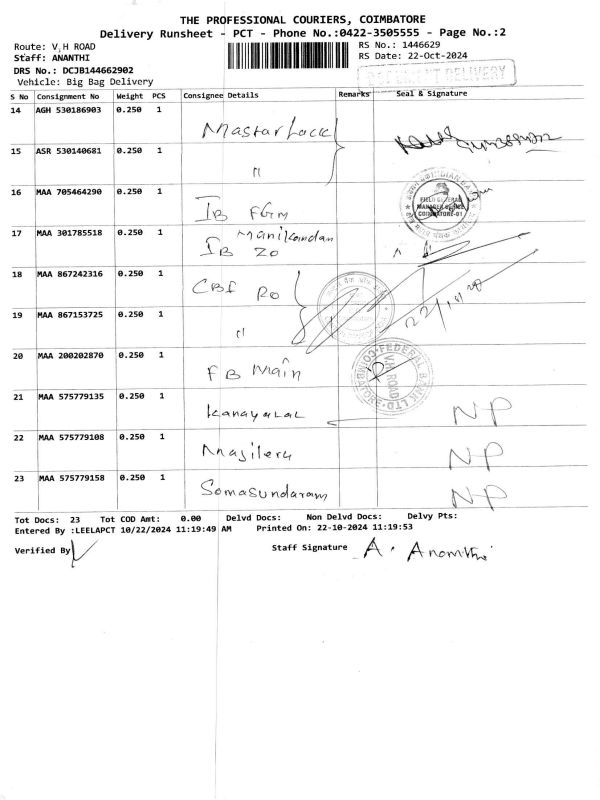 THE PROFESSIONAL COURIERS, COIMBATORE
Delivery Runsheet - PCT - Phone No.:0422-3505555 - Page No.:2
Route: V,H ROAD
RS No.: 1446629
Staff: ANANTHI
RS Date: 22-Oct-2024
DRS No.: DCJB144662902
Vehicle: Big Bag Delivery
S No Consignment No Weight PCS Consignee Details Remarks Seal & Signature
14 AGH 530186903 0.250 1
15 ASR 530140681 0.250 1 "
16 MAA 705464290 0.250 1 IB FGM
FIELD GENERAL
MANAGER OFFICE
COIMBATORE-01
17 MAA 301785518 0.250 1 Manikandan
IB ZO
18 MAA 867242316 0.250 1 CBE RO
19 MAA 867153725 0.250 1 "
20 MAA 200202870 0.250 1 FB Main
FEDERAL BANK LTD. COIMBATORE
V.H ROAD
21 MAA 575779135 0.250 1 Kanayalal NP
22 MAA 575779108 0.250 1 NP
23 MAA 575779158 0.250 1 Somasundaram NP
Tot Docs: 23 Tot COD Amt: 0.00 Delvd Docs: Non Delvd Docs: Delvy Pts:
Entered By :LEELAPCT 10/22/2024 11:19:49 AM Printed On: 22-10-2024 11:19:53
Verified By
Staff Signature